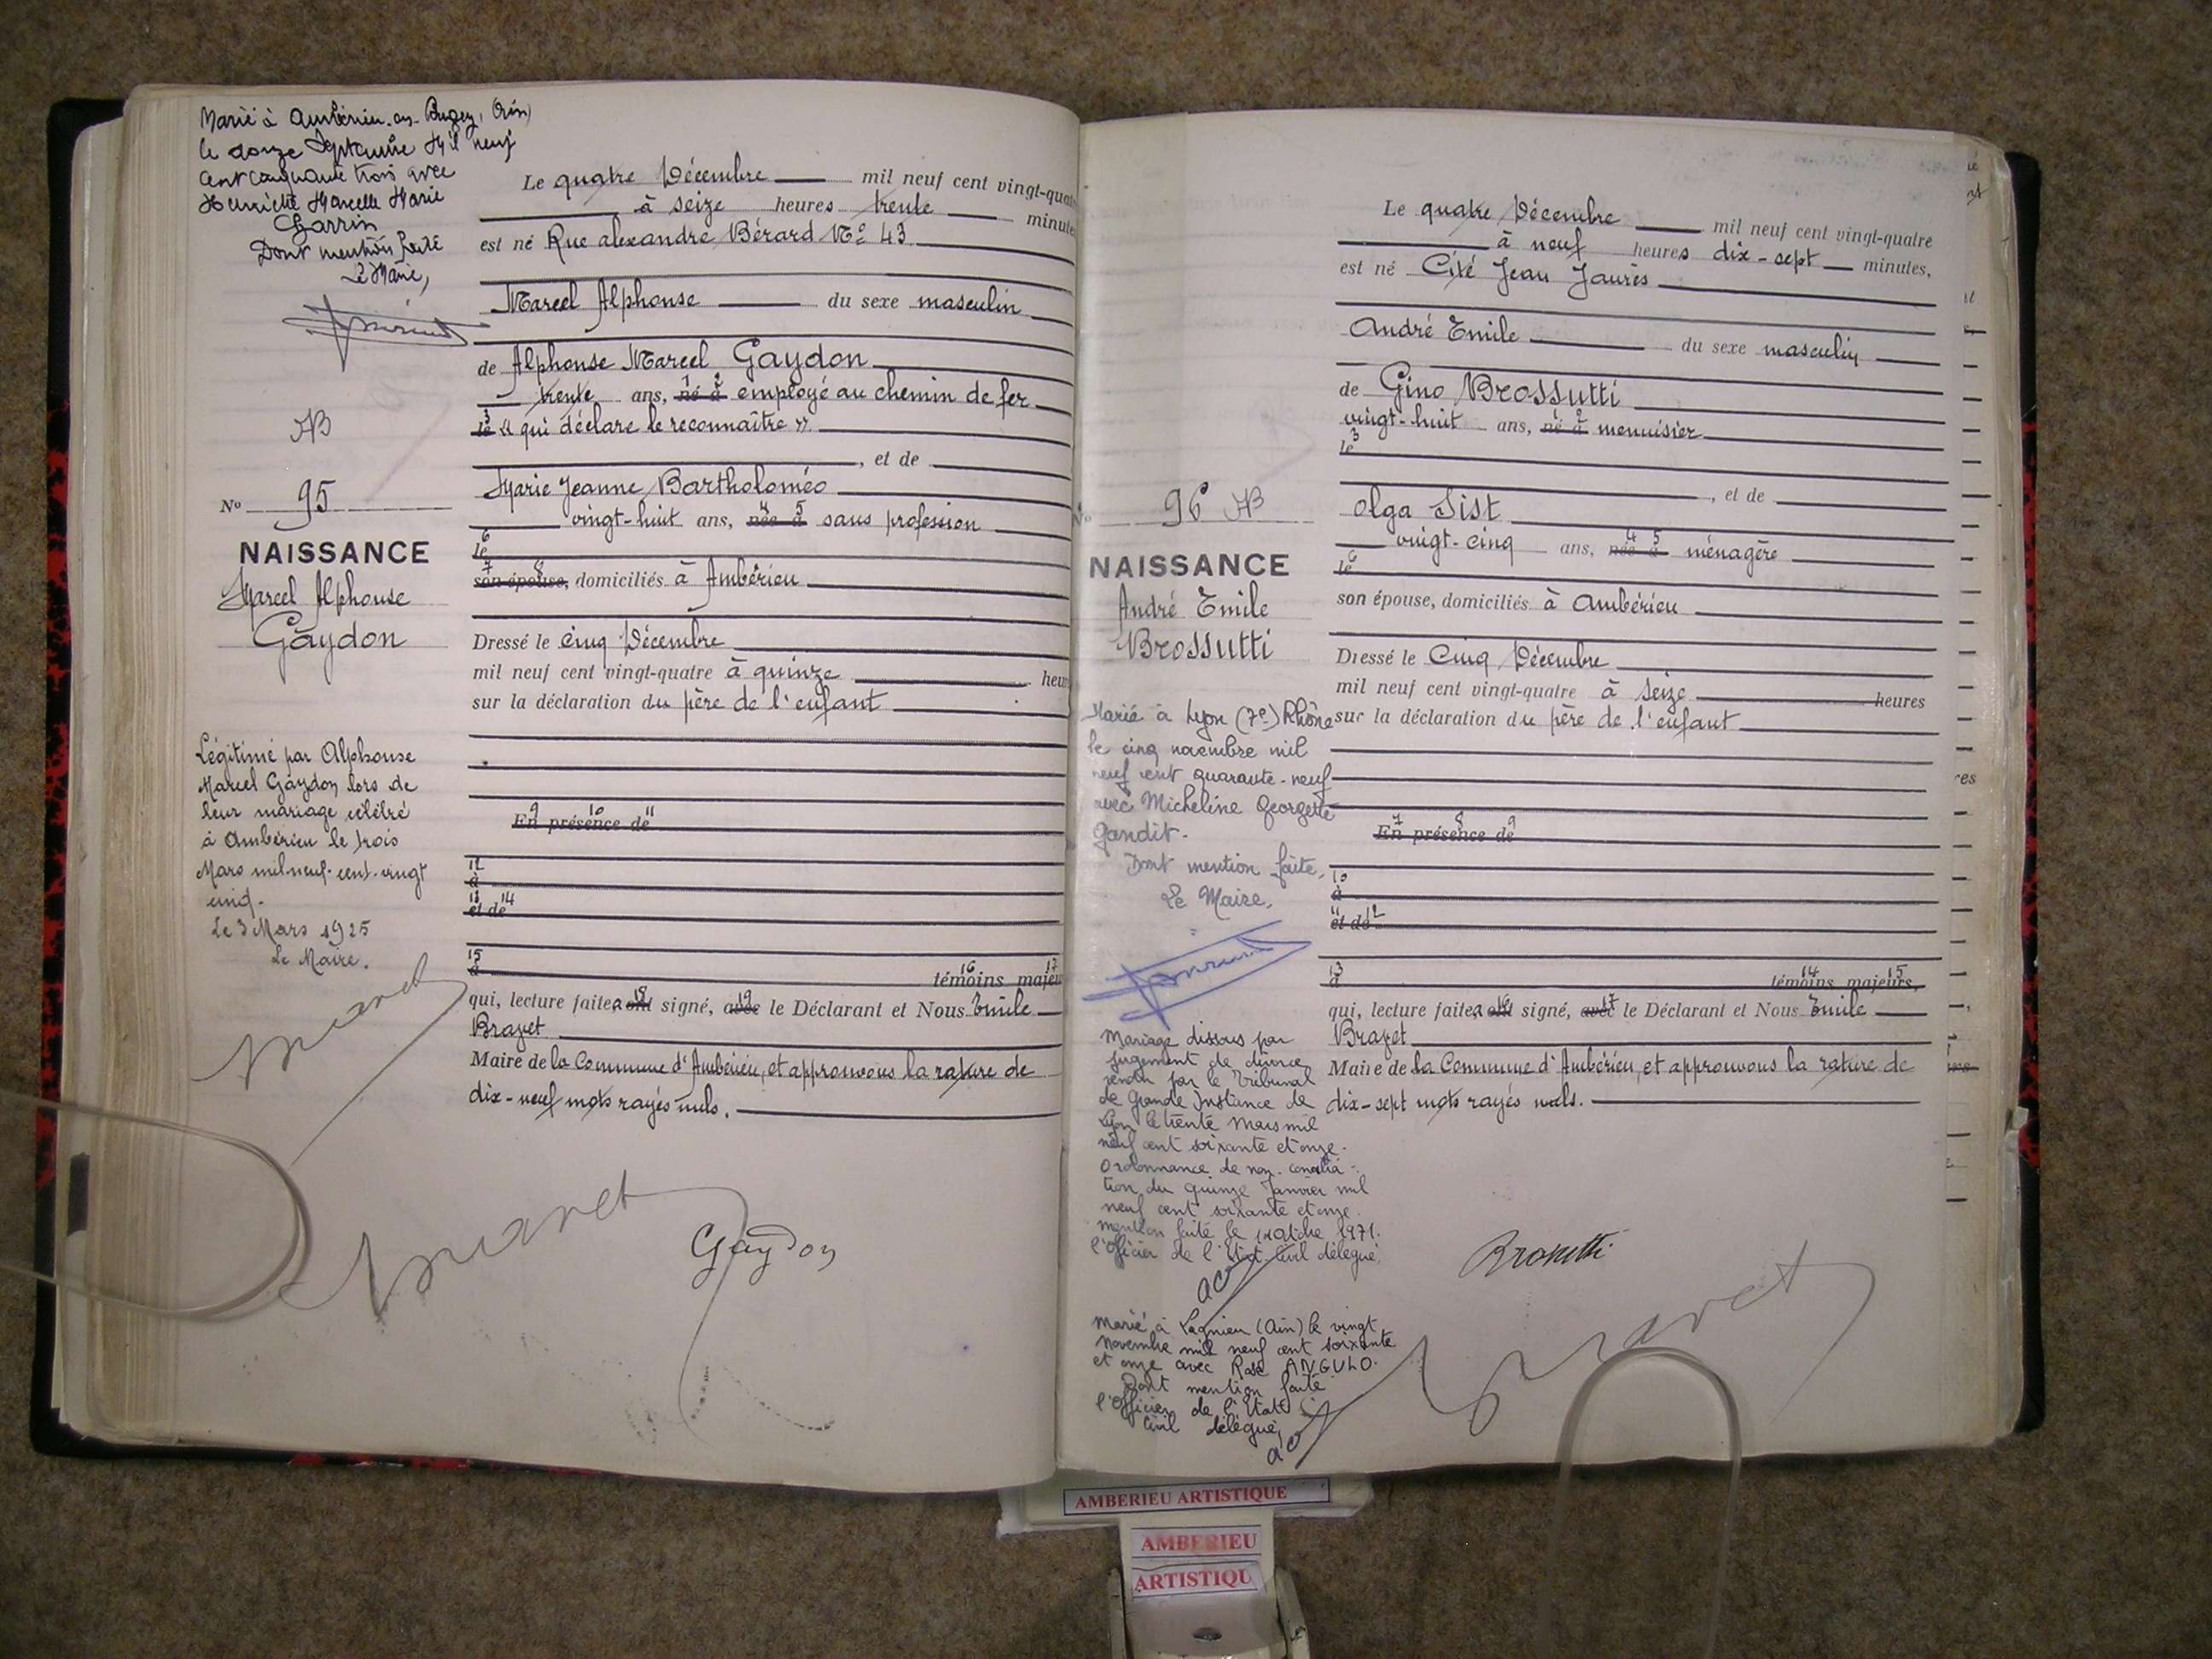 Marié à Ambérieu-en-Bugey, (Ain)
le douze Septembre Mil neuf
cent cinquante trois avec
Henriette Marcelle Marie
Dont mention faite
Le Maire,
N° 95
NAISSANCE
Marcel Alphonse
Gaydon
Légitimé par Alphonse
Marcel Gaydon lors de
leur mariage célébré
à Ambérieu le trois
Mars mil-neuf-cent-vingt
cinq.
Le 3 Mars 1925
Le Maire.
Le quatre Décembre mil neuf cent vingt-quatr
à seize heures trente minutes
est né Rue alexandre Bérard N° 43
Marcel Alphonse du sexe masculin
de Alphonse Marcel Gaydon
trente ans, né à 1 2 employé au chemin de fer
le 3 « qui déclare le reconnaître »
, et de
Marie Jeanne Bartholoméo
vingt-huit ans, née à 4 5 sans profession
le 6
7 8 son épouse, domiciliés à Ambérieu
Dressé le cinq Décembre
mil neuf cent vingt-quatre à quinze heur
sur la déclaration du père de l'enfant
9 10 11
En présence de
12
à
13 14
et de
15
à
16 17
témoins majeu
qui, lecture faite, a ont 18 signé, avec 19 le Déclarant et Nous Emile
Bravet
Maire de la Commune d'Ambérieu, et approuvons la rature de
dix-neuf mots rayés nuls.
Bravet
Gaydon
N° 96
NAISSANCE
André Emile
Brossutti
Marié à Lyon (7e) Rhône
le cinq novembre mil
neuf cent quarante-neuf
avec Micheline Georgette
Gandit.
Dont mention faite,
Le Maire.
Mariage dissous par
jugement de divorce
rendu par le Tribunal
de Grande Instance de
Lyon le trente Mars mil
neuf cent soixante et onze.
Ordonnance de non-concilia-
tion du quinze Janvier mil
neuf cent soixante et onze.
mention faite le 1971.
l'Officier de l'Etat Civil délégué,
Marié à Lagnieu (Ain) le vingt
Novembre mil neuf cent soixante
et onze avec Rose ANGULO.
Dont mention faite
l'Officier de l'Etat
Civil délégué,
Le quatre Décembre mil neuf cent vingt-quatre
à neuf heures dix-sept minutes,
est né Cité Jean Jaurès
André Emile du sexe masculin
de Gino Brossutti
vingt-huit ans, né à 1 2 menuisier
le 3
, et de
Olga Sist
vingt-cinq ans, née à 4 5 ménagère
le 6
son épouse, domiciliés à Ambérieu
Dressé le Cinq Décembre
mil neuf cent vingt-quatre à seize heures
sur la déclaration du père de l'enfant
7 8 9
En présence de
10
à
11 12
et de
13
à
14 15
témoins majeurs,
qui, lecture faite, a ont 16 signé, avec 17 le Déclarant et Nous Emile
Bravet
Maire de la Commune d'Ambérieu, et approuvons la rature de
dix-sept mots rayés nuls.
Bravet
AMBERIEU ARTISTIQUE
AMBERIEU
ARTISTIQU